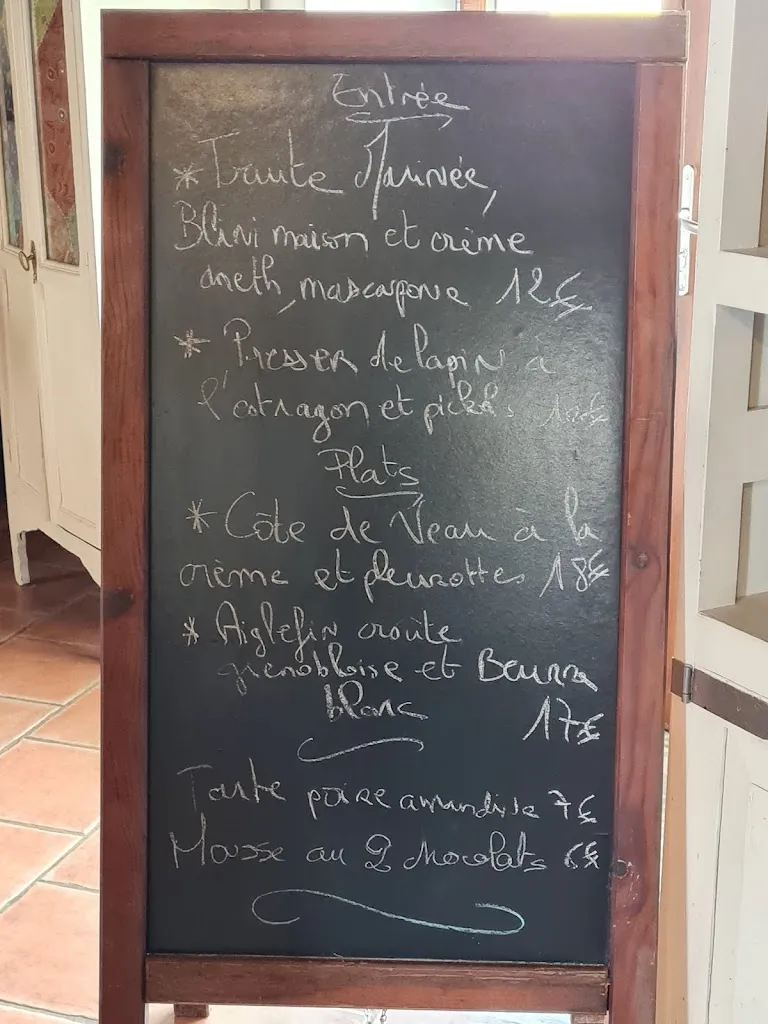 Entrée
* Truite Marinée,
Blini maison et crème
aneth, mascarpone 12€
* Presser de lapin à
l'estragon et pickels
Plats
* Côte de Veau à la
crème et pleurottes 18€
* Aiglefin croûte
grenobloise et Beurre
blanc
17€
Tarte poire amandine 7€
Mousse au 2 chocolats 6€